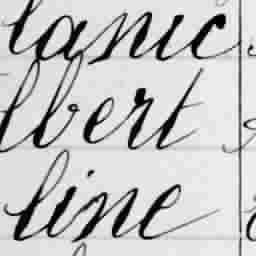 lanie
lbert
line